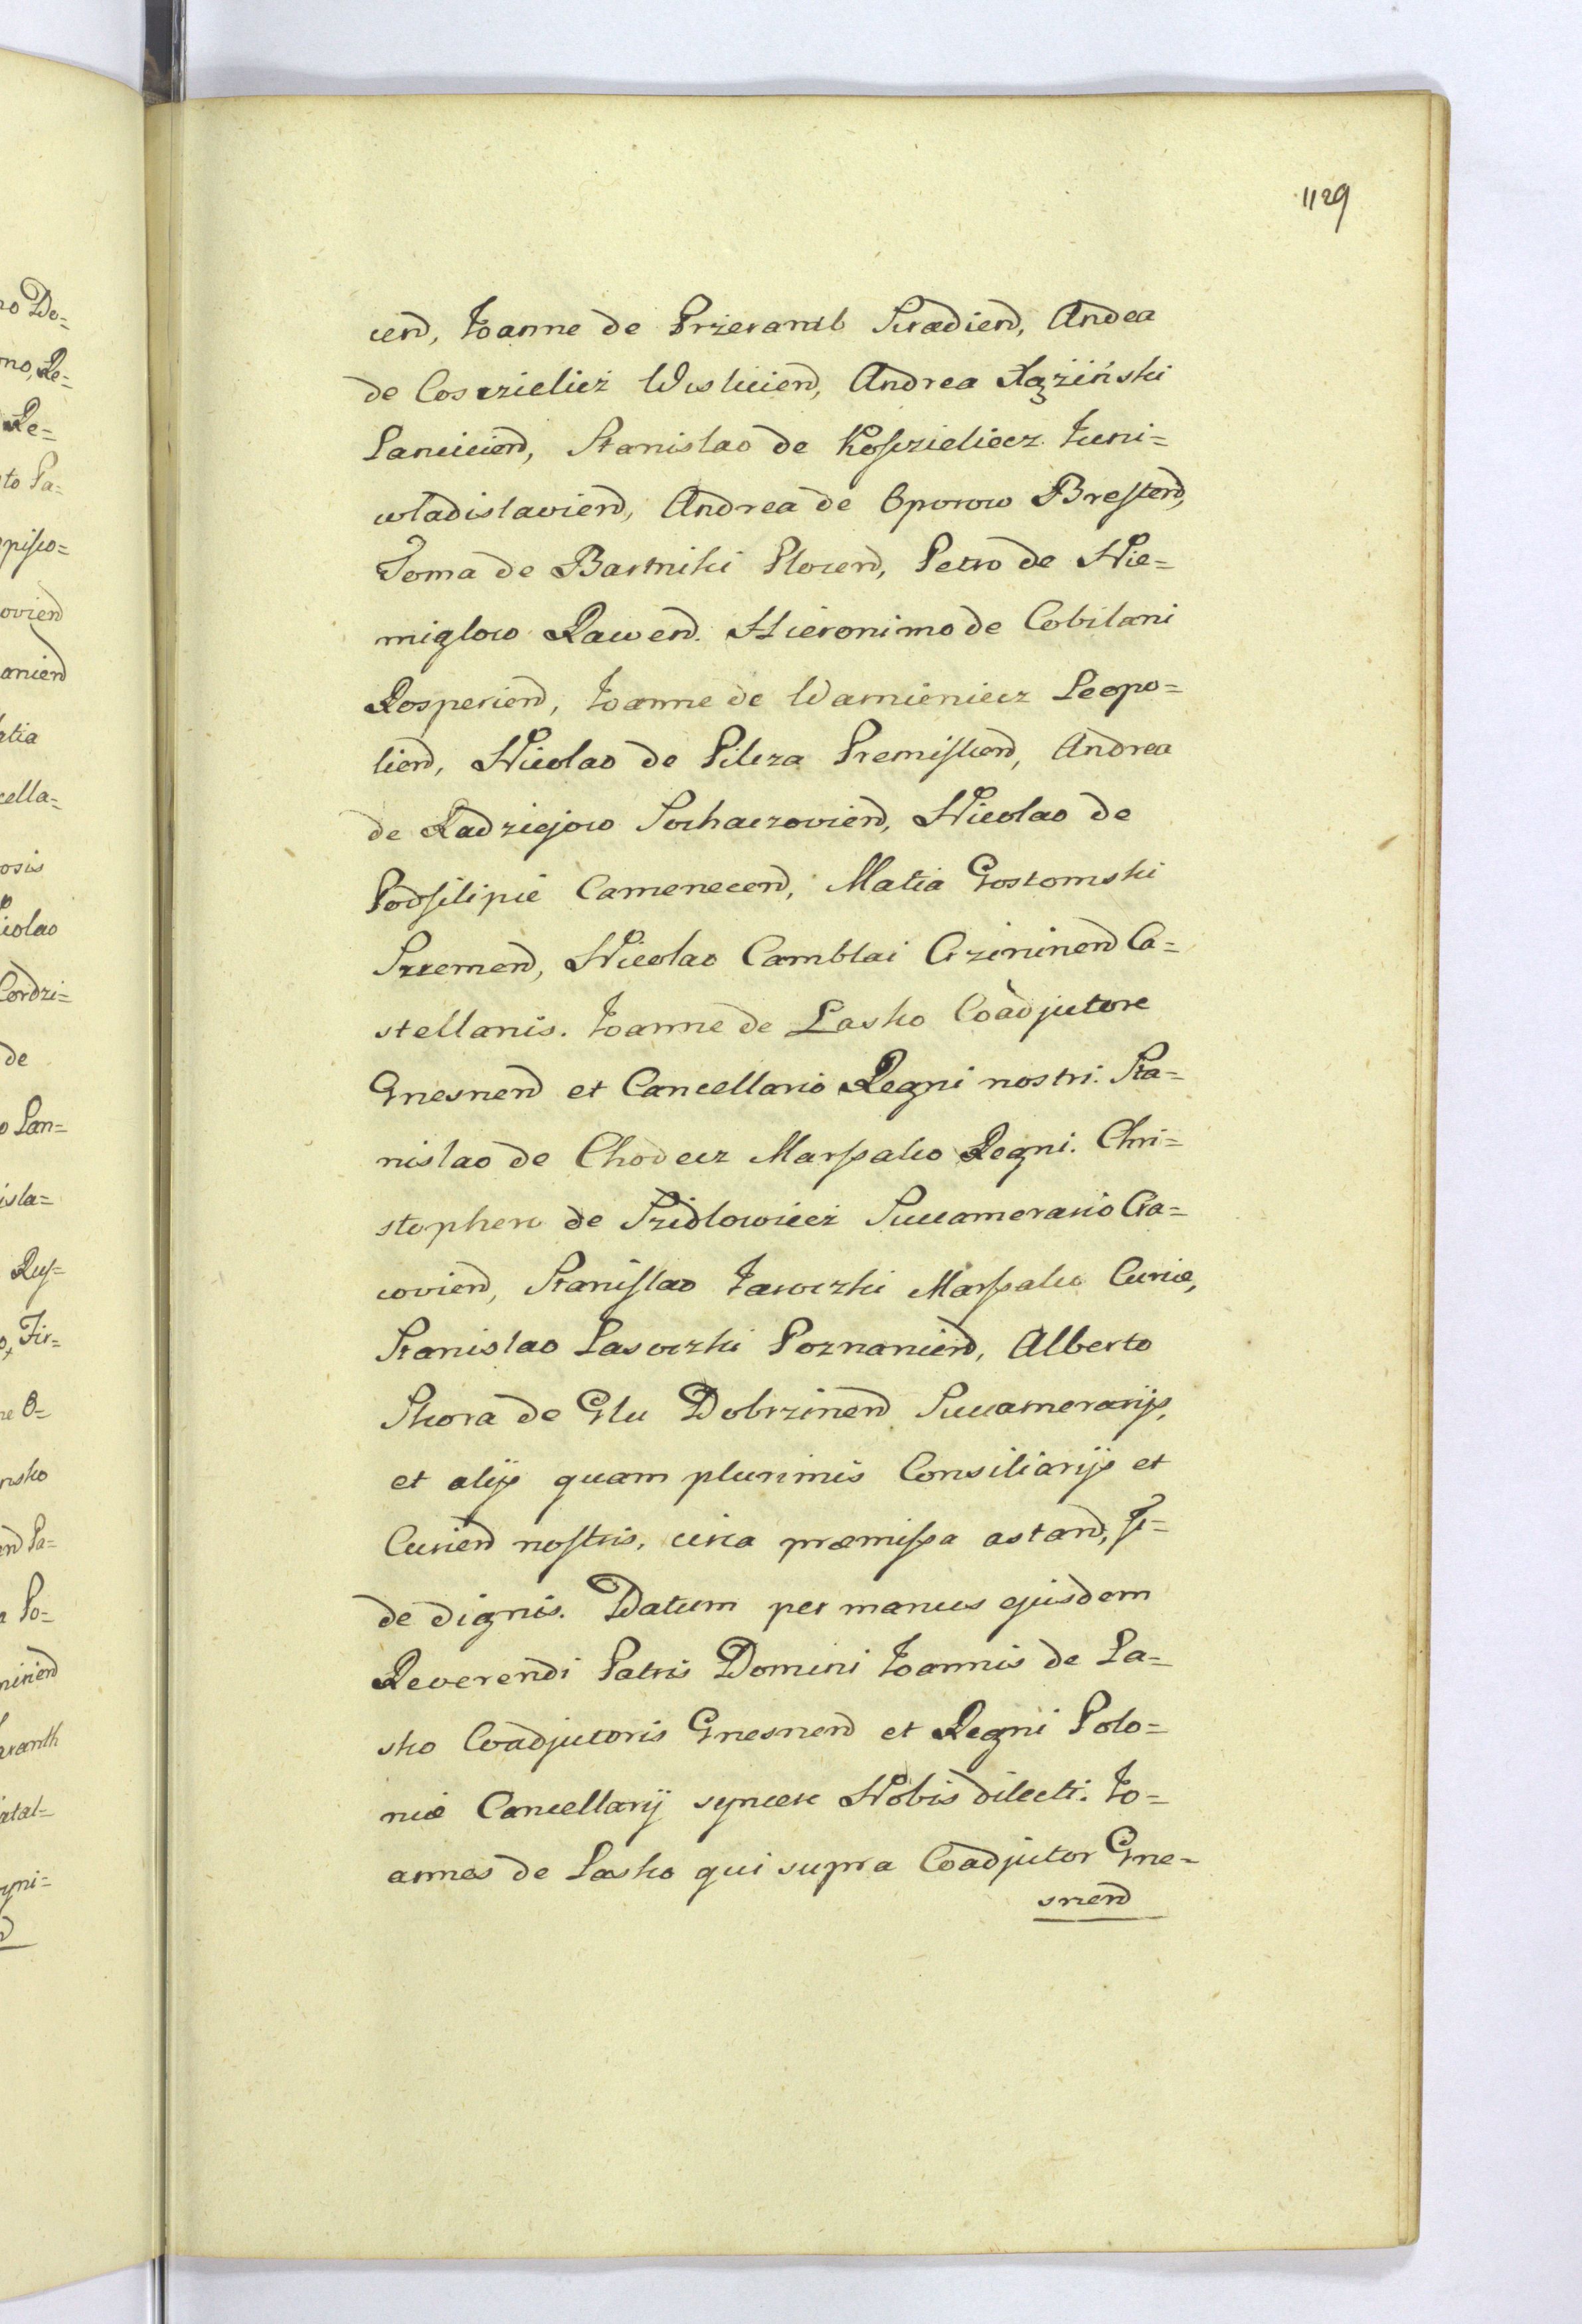 1129
cen, Joanne de Przeramb Siradien, Andea
de Coszieliez Wislicien, Andrea Xążiński
Lancicien, Stanislao de Koscieliecz Juni=
wladislavien, Andrea de Oporow Bresten,
Toma de Bartniki Plocen, Petro de Nie=
miglow Rawen. Hieronimo de Cobilani
Rosperien, Joanne de Wamieniecz Leopo=
lien, Nicolao de Pilcza Premislien, Andrea
de Radziejow Sochaczovien, Nicolao de
Podfilipie Camenecen, Matia Gostomski
Szremen, Nicolao Camblai Czrininen Ca=
stellanis. Joanne de Lasko Coadjutore
Gnesnen et Cancellario Regni nostri. Sta=
nislao de Chodecz Marsalco Regni. Chri=
stophero de Szidlowiecz Succamerario Cra=
covien, Stanislao Jaroczki Marsalco Curiæ,
Stanislao Lasoczki Poznanien, Alberto
Skora de Glu Dobrzinen Succamerarijs,
et alijs quam plurimis Consiliarijs et
Curien nostris, circa præmissa astan, fi=
de dignis. Datum per manus ejusdem
Reverendi Patris Domini Joannis de La=
sko Coadjutoris Gnesnen et Regni Polo=
niæ Cancellarij syncere Nobis dilecti. Jo=
annes de Lasko qui supra Coadjutor Gne=
snen